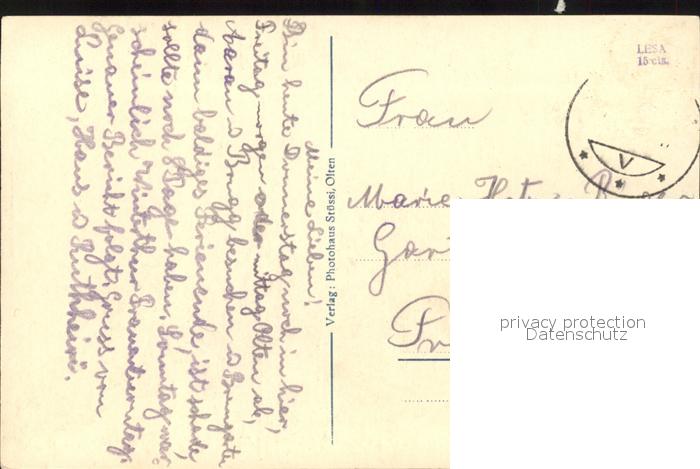 Meine Lieben!
Bin heute Donnerstag noch in hier,
Freitag morgen oder mittag Olten ab,
Aarau u Brugg besuchen u Bremgarten
dann baldiges Ferienende, ist schade,
sollte noch 8 Tage haben, Sonntag war-
scheinlich Winterthur
Genauer Bericht folgt, Gruss von
Luise, Hans u Ruthheini.
Verlag: Photohaus Stüssi, Olten
LESA
15 cts.
V
Frau
Marie
privacy protection
Datenschutz